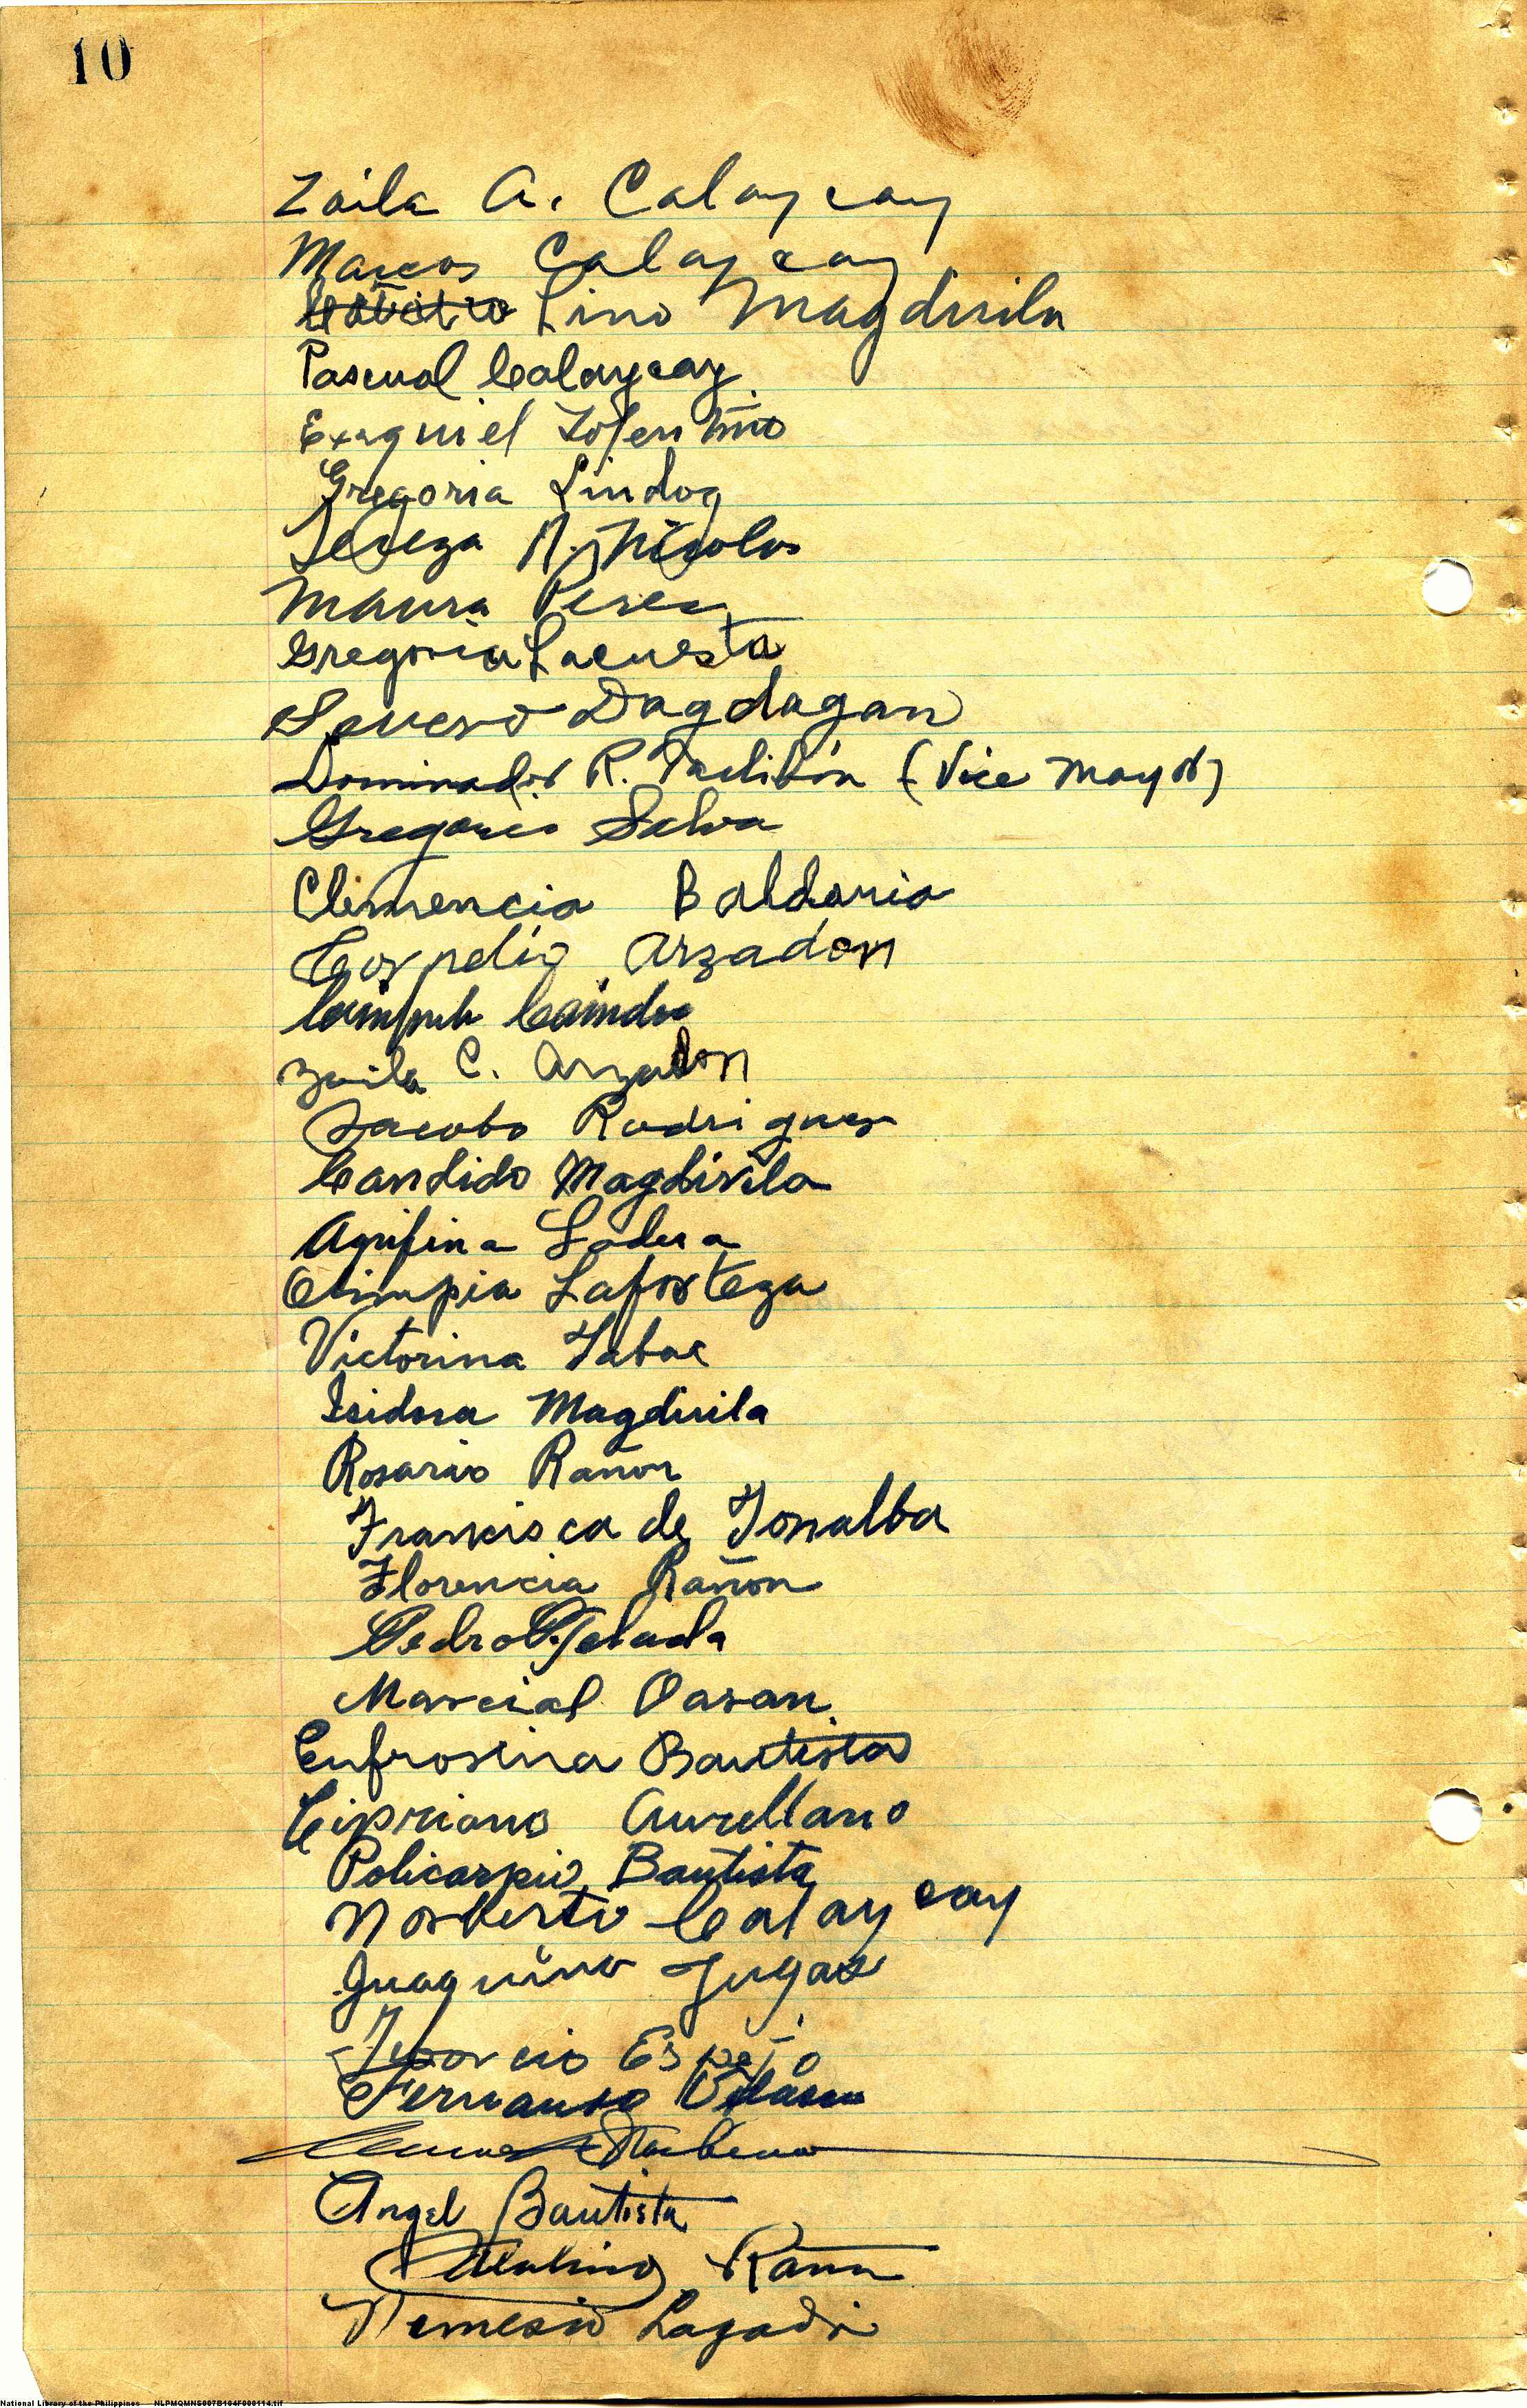 10
Zoila A. Calaycay
Marcos Calaycay
Lino Magdirila
Pascual Calaycay
Exequiel Tolentino
Gregoria Lindog
Tereza N. Nicolas
Maura Perez
Gregoria Lacuesta
Severo Dagdagan
Dominador R. Taclibon (Vice Mayor)
Gregorio Salva
Climencia Baldaria
Corpelio Arzadon
Caindoc
Zoila C. Arzadon
Jacobo Rodriguez
Candido Magdirila
Agrifina Ladera
Olimpia Laforteza
Victorina Tabac
Isidora Magdirila
Rosario Rañon
Francisca de Torralba
Florencia Rañon
Pedro Q. Felada
Marcial Oasan
Eufrosina Bautista
Cipriano Aurellano
Policarpio Bautista
Norberto Calaycay
Juaquino Jugas
Espejo
Fernando Velasco
Angel Bautista
Nemesio Lagadi
National Library of the Philippines NLPMQMNS007B104F000114.tif